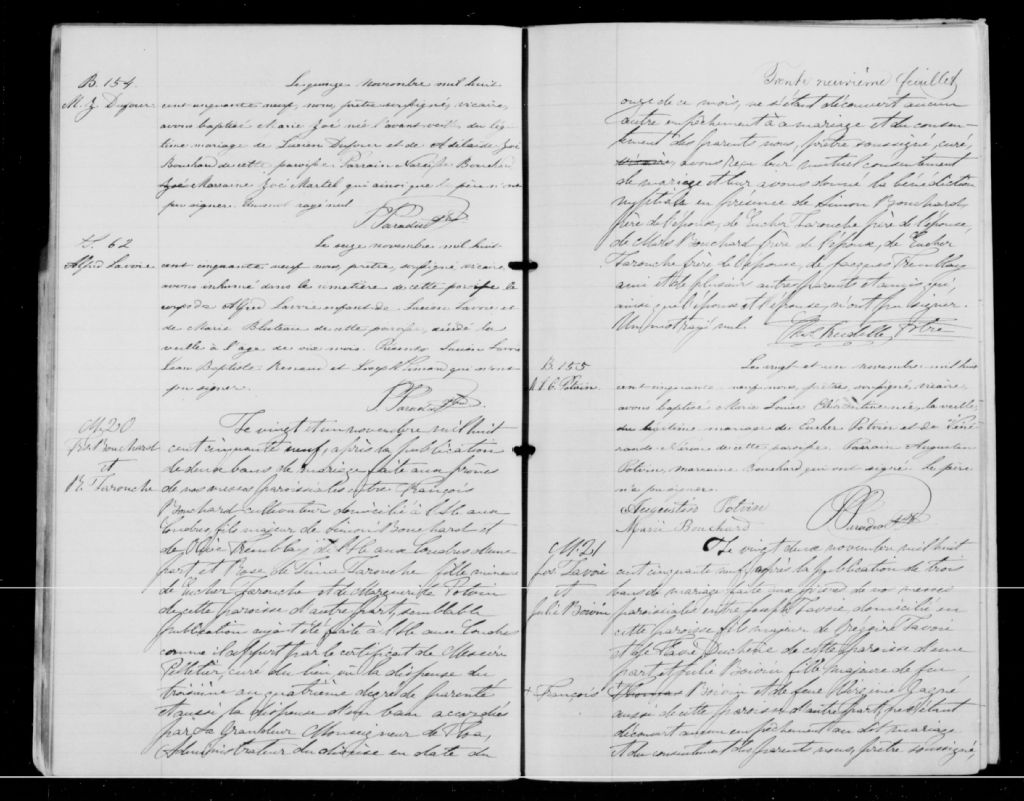 B. 154.
M. Z. Dufour
Le quinze novembre mil huit
cent cinquante neuf, nous prêtre soussigné, vicaire,
avons baptisé Marie Zoé née l'avant veille du légi-
time mariage de Lucien Dufour et de Adelaide Zoé
Bouchard de cette paroisse. Parrain Narcisse Bouchard
Zoé Marraine Zoé Martel qui ainsi que le père n'ont
pu signer. Un mot rayé nul
P. Paradis Ptre
S. 62
Alfred Savoie
Le seize novembre mil huit
cent cinquante neuf nous, prêtre, soussigné vicaire
avons inhumé dans le cimetière de cette paroisse le
corps de Alfred Savoie enfant de Lucien Savoie et
de Marie Bluteau de cette paroisse, décédé la
veille à l'age de mois. Présents Lucien Savoie
Jean Baptiste Renaud et Joseph Simard qui n'ont
pu signer.
P. Paradis Ptre
M. 20
Frs Bouchard
et
R. Larouche
Le vingt et un novembre mil huit
cent cinquante neuf, après la publication
de deux bans de mariage faite aux prônes
de nos messes paroissiales entre François
Bouchard cultivateur domicilié à l'Isle aux
Coudres, fils majeur de Simon Bouchard et
de Tremblay de l'Isle aux Coudres d'une
part, et Rose de Lima Larouche fille mineure
de Eucher Larouche et de Marguerite Potvin
de cette paroisse d'autre part, semblable
publication ayant été faite à l'Isle aux Coudres
comme il appert par le certificat de Messire
Pelletier, curé du lieu vu la dispense du
troisième au quatrième degré de parenté
et aussi la dispense d'un ban accordées
par Sa Grandeur Monseigneur de Tloa,
Administrateur du diocèse en date du
Trente neuvième feuillet
onze de ce mois, ne s'étant découvert aucun
autre empêchement à ce mariage et du consen-
tement des parents nous, prêtre soussigné, curé,
vicaire, avons reçu leur mutuel consentement
de mariage et leur avons donné la bénédiction
nuptiale en présence de Simon Bouchard,
père de l'époux, de Eucher Larouche père de l'épouse,
de Bouchard frère de l'époux, de Eucher
Larouche frère de l'épouse, de Jacques Tremblay
ami et de plusieurs autres parents et amis qui,
ainsi que l'époux et l'épouse, n'ont pu signer.
Un mot rayé nul.
Ptre
B. 155
M. L. C. Potvin
Le vingt et un novembre mil huit
cent cinquante neuf nous, prêtre, soussigné vicaire,
avons baptisé Marie Louise Clémentine née, la veille
du légitime mariage de Eucher Potvin et de
de cette paroisse. Parrain Augustin
Potvin, marraine Bouchard qui ont signé. Le père
n'a pu signer.
Augustin Potvin
Marie Bouchard
P. Paradis Ptre
M. 21
Jos. Savoie
et
Julie Boivin
Le vingt deux novembre mil huit
cent cinquante neuf après la publication de trois
bans de mariage faite aux prônes de nos messes
paroissiales entre Joseph Savoie domicilié en
cette paroisse fils majeur de Grégoire Savoie
et de Duchene de cette paroisse d'une
part et Julie Boivin fille majeure de feu
+ François
Thomas Boivin et de feue Virginie Gagné
aussi de cette paroisse d'autre part, ne s'étant
découvert aucun empêchement au dit mariage
et du consentement des parents nous, prêtre soussigné,